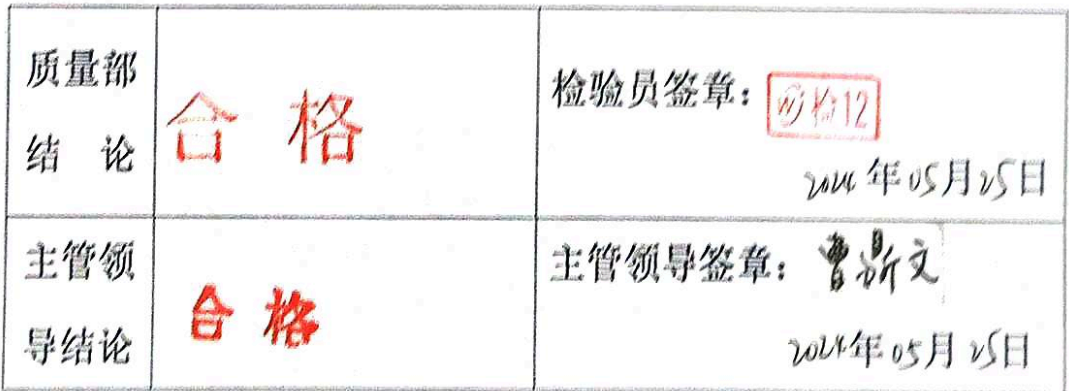 质量部
结 论
合 格
检验员签章:
检12
2024年05月25日
主管领
导结论
合 格
主管领导签章:曹斯文
2024年05月25日